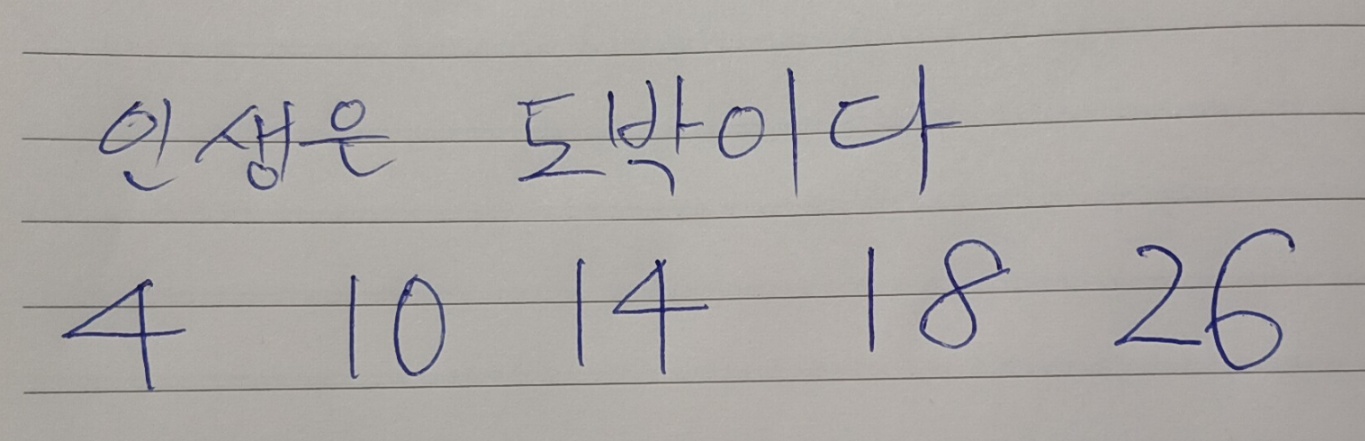 인생은 도박이다
4 10 14 18 26